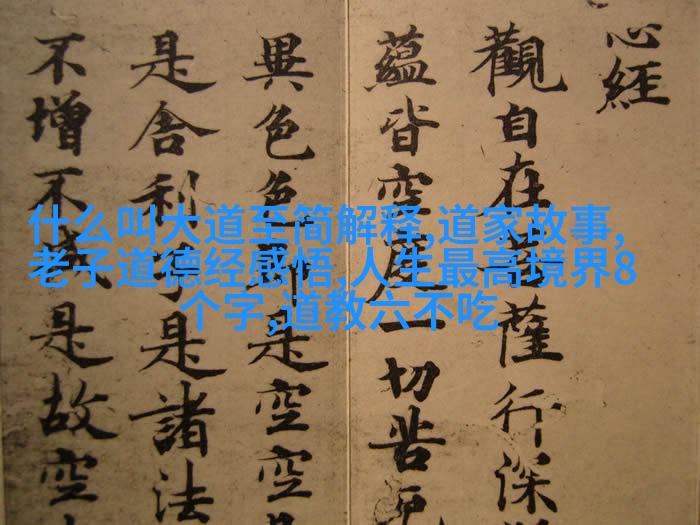 心經
觀自在菩薩行深
蘊皆空度一切苦厄
異色色即是空空
是舍利子是諸法
不增不減是故空
什么叫大道至简解释,道家故事,
老子道德经感悟,人生最高境界8
个字,道教六不吃